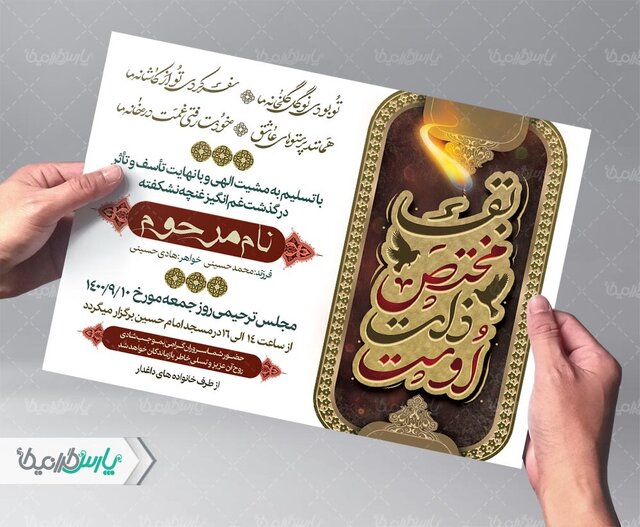 تو بودی نوگل گلخانه ما سفر کردی تو از کاشانه ما
همانند پرستوهای عاشق خودت رفتی غمت در خانه ما
با تسلیم به مشیت الهی و با نهایت تأسف و تأثر
درگذشت غم انگیز غنچه نشکفته
نام مرحوم
فرزند: محمد حسینی خواهر: هادی حسینی
مجلس ترحیمی روز جمعه مورخ ۱۴۰۰/۹/۱۰
از ساعت ۱۴ الی ۱۶ در مسجد امام حسین برگزار میگردد
حضور شما سروران گرامی موجب شادی
روح آن عزیز و تسلی خاطر بازماندگان خواهد شد
از طرف خانواده های داغدار
بقا
مختص
ذات
اوست
پارس گرافیک